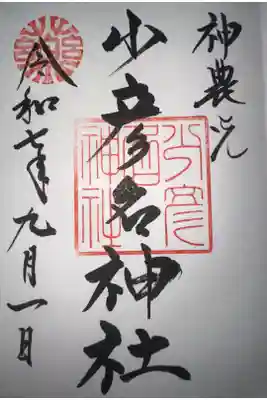 神農さん
少彦名神社
令和七年九月一日
少彦名神社